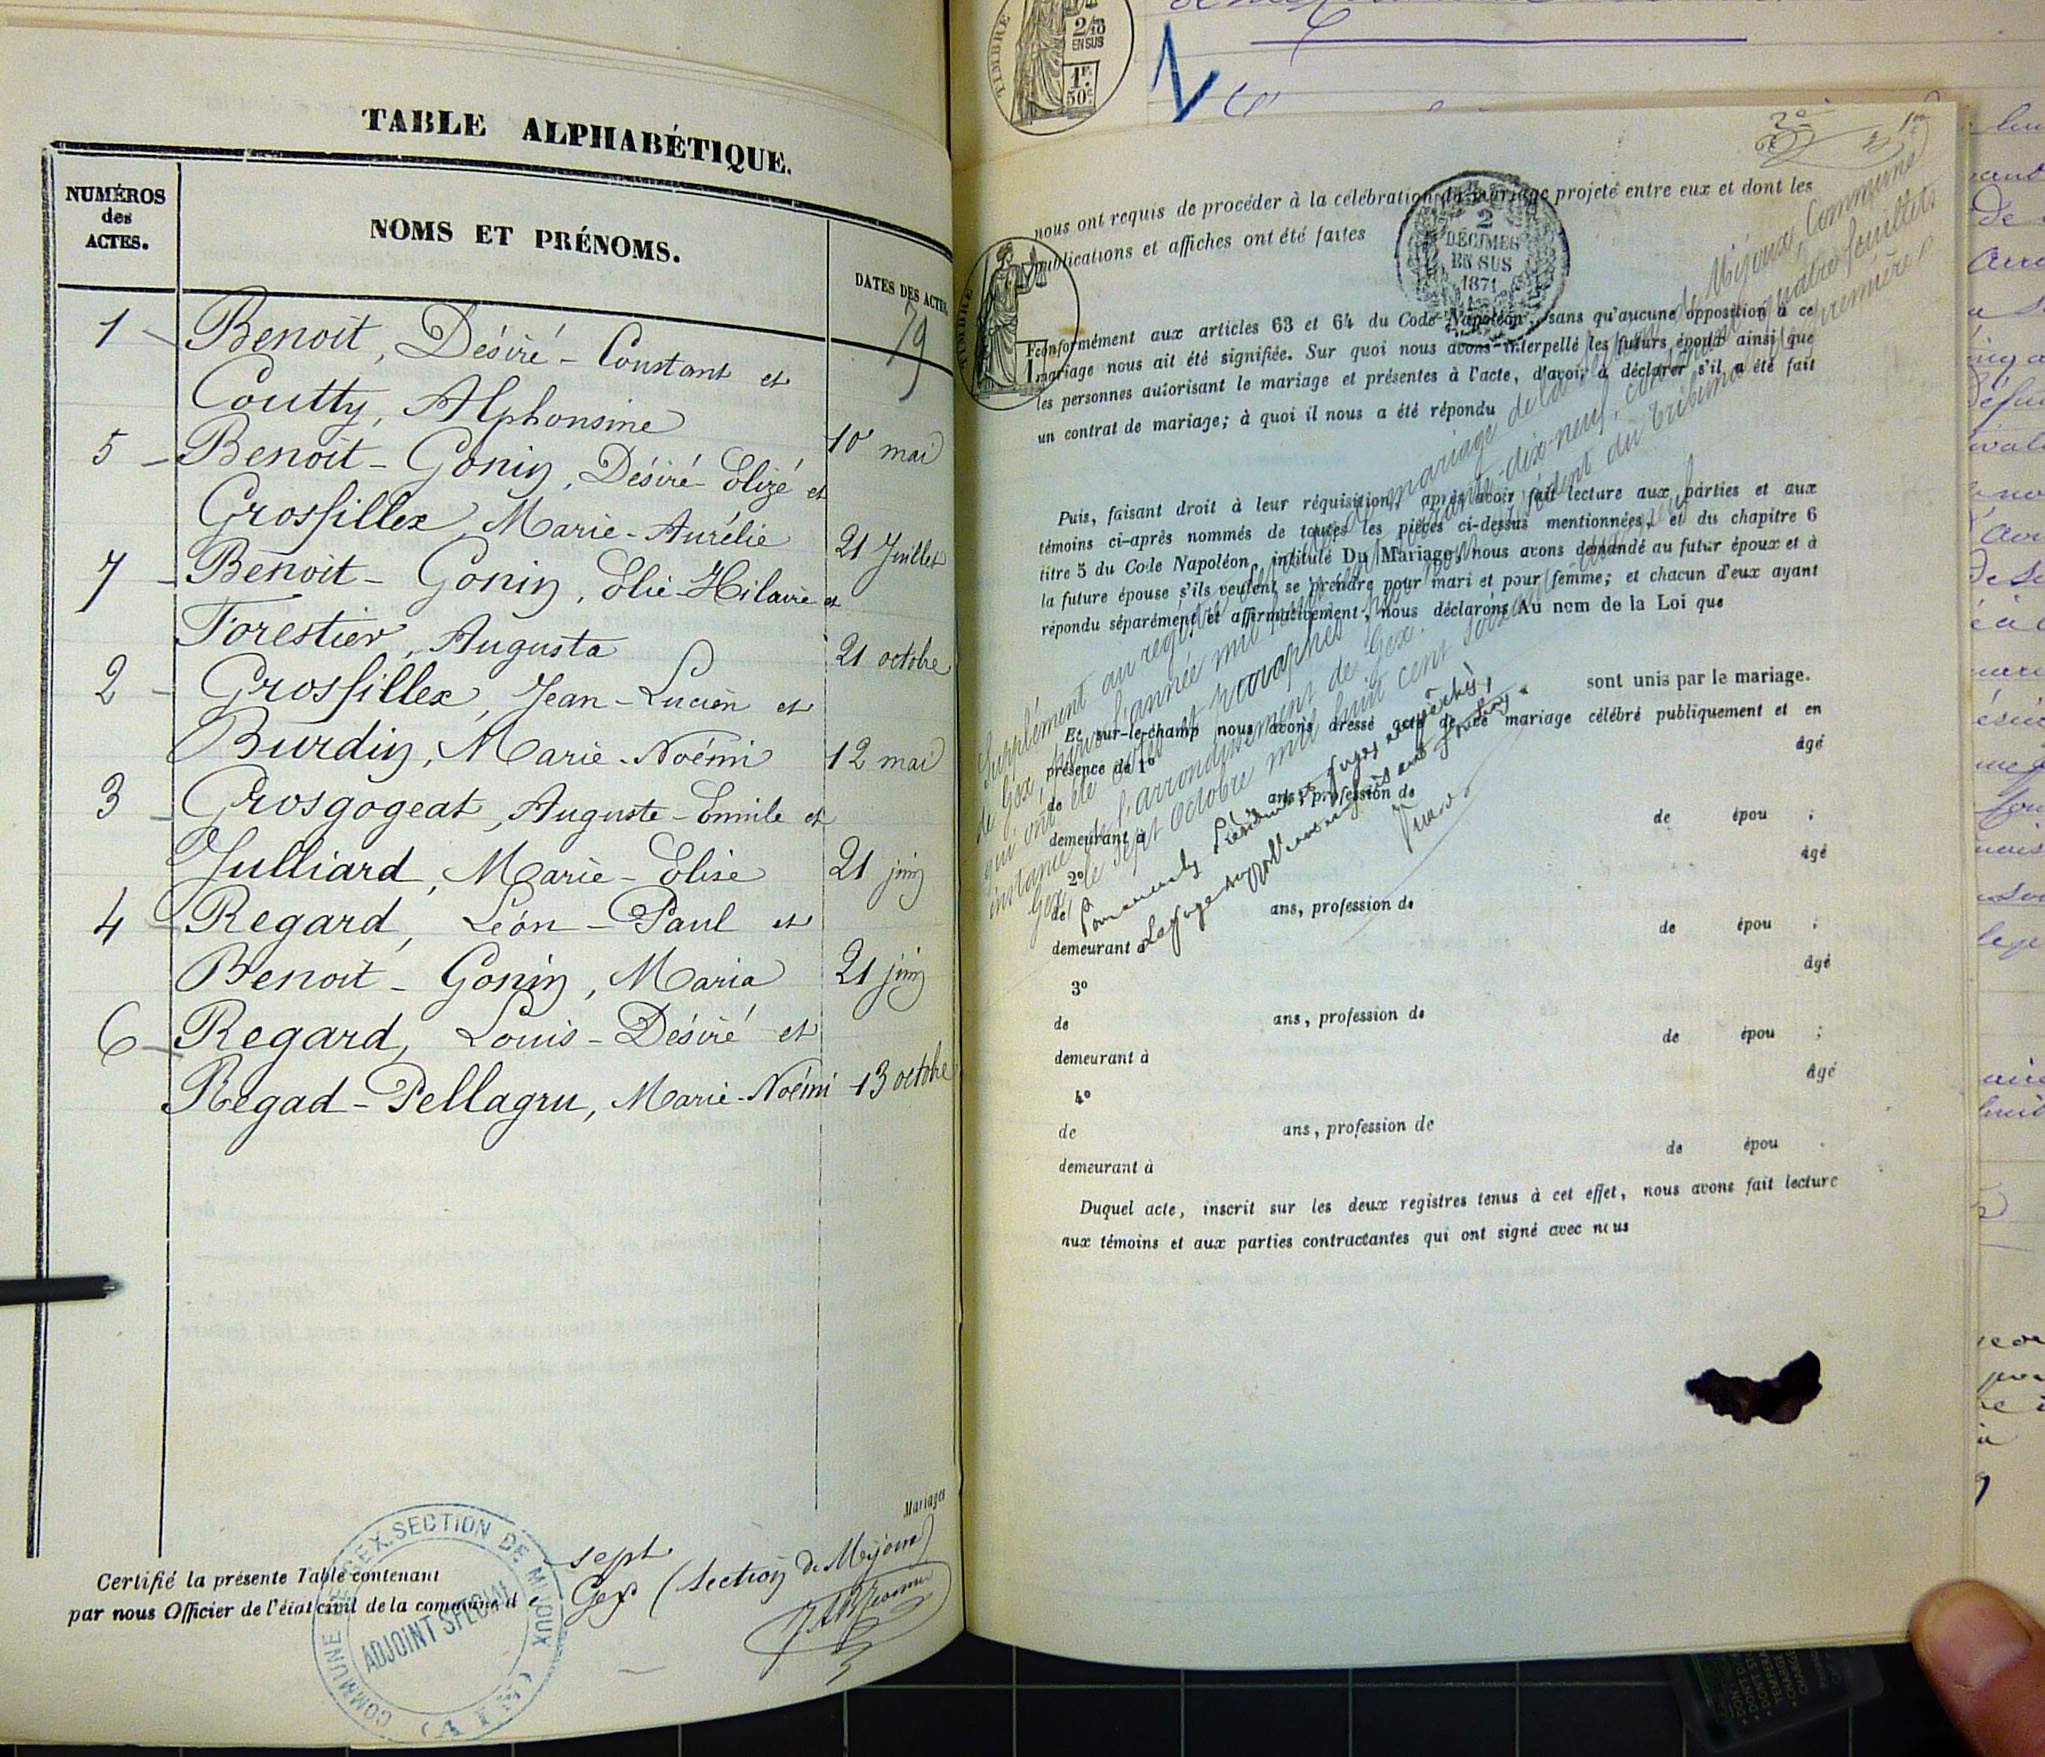 TABLE ALPHABÉTIQUE.
NUMÉROS
des
ACTES.
NOMS ET PRÉNOMS.
DATES DES ACTES.
79
1 Benoit, Désiré - Constant et
Coutty, Alphonsine 10 mai
5 Benoit - Gonin, Désiré - Elizé et
Grosfillex, Marie - Aurélie 21 Juillet
7 Benoit - Gonin, Elie - Hilaire et
Forestier, Augusta 21 octobre
2 Grosfillex, Jean - Lucien et
Burdin, Marie - Noémi 12 mai
3 Grosgogeat, Auguste - Emile et
Julliard, Marie - Elise 21 juin
4 Regard, Léon - Paul et
Benoit - Gonin, Maria 21 juin
6 Regard, Louis - Désiré et
Regad - Pellagru, Marie - Noémi 13 octobre
Mariages
Certifié la présente Table contenant sept
par nous Officier de l'état civil de la commune d e Gex (Section de Mijoux)
COMMUNE DE GEX. SECTION DE MIJOUX
ADJOINT SPÉCIAL
(AIN)
TIMBRE
2/10
EN SUS
1F.
50c.
2e
1er
nous ont requis de procéder à la célébration du mariage projeté entre eux et dont les
publications et affiches ont été faites
2
DÉCIMES
EN SUS
1871
TIMBRE
conformément aux articles 63 et 64 du Code Napoléon, sans qu'aucune opposition à ce
mariage nous ait été signifiée. Sur quoi nous avons interpellé les futurs époux ainsi que
les personnes autorisant le mariage et présentes à l'acte, d'avoir à déclarer s'il a été fait
un contrat de mariage; à quoi il nous a été répondu
Puis, faisant droit à leur réquisition, après avoir fait lecture aux parties et aux
témoins ci-après nommés de toutes les pièces ci-dessus mentionnées, et du chapitre 6
titre 5 du Code Napoléon, intitulé Du Mariage, nous avons demandé au futur époux et à
la future épouse s'ils veulent se prendre pour mari et pour femme; et chacun d'eux ayant
répondu séparément et affirmativement, nous déclarons Au nom de la Loi que
sont unis par le mariage.
Et sur-le-champ nous avons dressé acte de ce mariage célébré publiquement et en
présence de 1o âgé
de ans, profession de
demeurant à de épou ;
2o âgé
de ans, profession de
demeurant à de épou ;
3o âgé
de ans, profession de
demeurant à de épou ;
4o âgé
de ans, profession de
demeurant à de épou .
Duquel acte, inscrit sur les deux registres tenus à cet effet, nous avons fait lecture
aux témoins et aux parties contractantes qui ont signé avec nous
Supplément au registre mariage de la section de Mijoux, Commune
de Gex, pour l'année mil huit cent soixante-dix-neuf, contenant quatre feuillets
qui ont été cotés et paraphés par président du tribunal de première
instance de l'arrondissement de Gex.
Gex, le sept octobre mil huit cent soixante